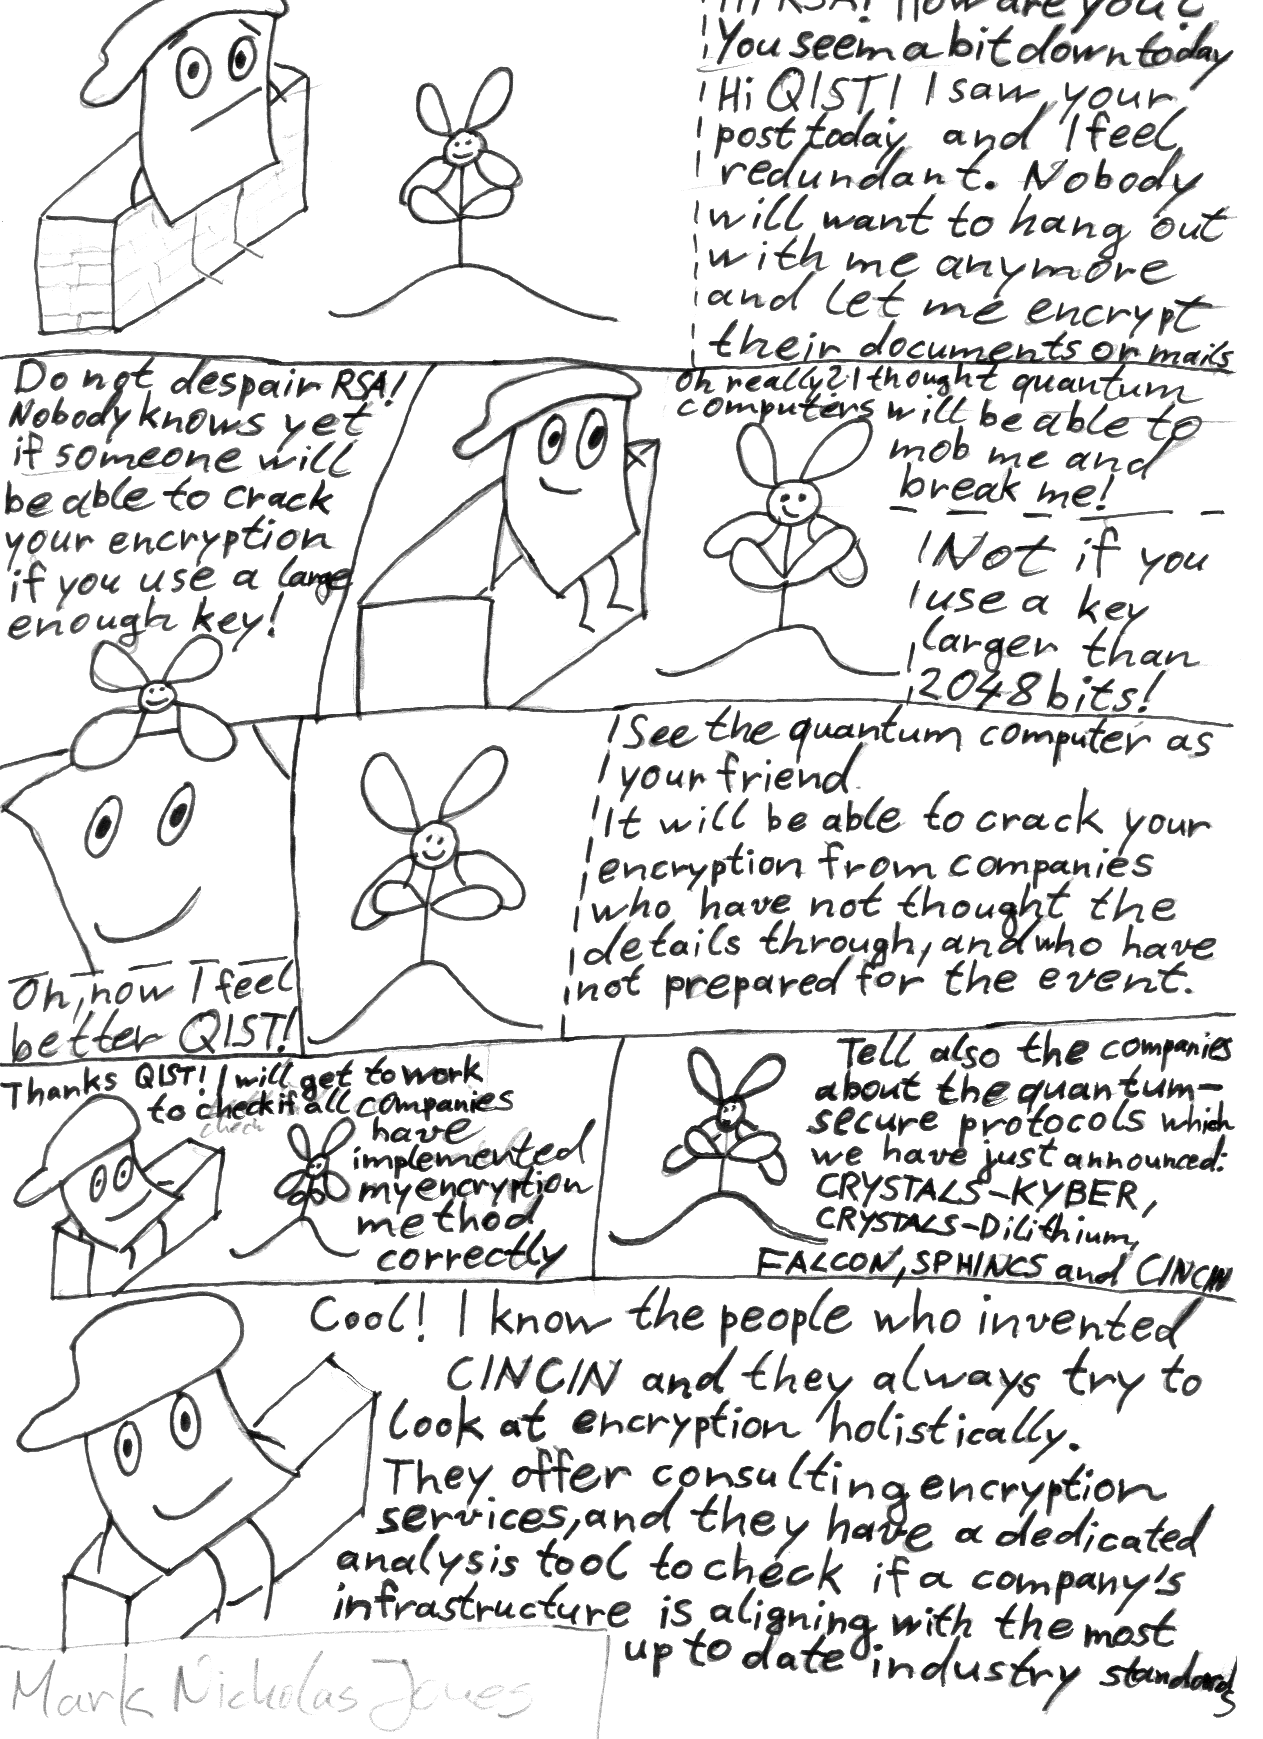 Hi RSA! How are you?
You seem a bit down today
Hi QIST! I saw your
post today and I feel
redundant. Nobody
will want to hang out
with me anymore
and let me encrypt
their documents or mails
Do not despair RSA!
Nobody knows yet
if someone will
be able to crack
your encryption
if you use a large
enough key!
Oh really?! I thought quantum
computers will be able to
mob me and
break me!
Not if you
use a key
larger than
2048 bits!
Oh, now I feel
better QIST!
See the quantum computer as
your friend.
It will be able to crack your
encryption from companies
who have not thought the
details through, and who have
not prepared for the event.
Thanks QIST! I will get to work
to check if all companies
check
have
implemented
my encryption
method
correctly
Tell also the companies
about the quantum-
secure protocols which
we have just announced:
CRYSTALS-KYBER,
CRYSTALS-Dilithium,
FALCON, SPHINCS and CINCIN
Cool! I know the people who invented
CINCIN and they always try to
look at encryption holistically.
They offer consulting encryption
services, and they have a dedicated
analysis tool to check if a company's
infrastructure is aligning with the most
up to date industry standards
Mark Nicholas Jones